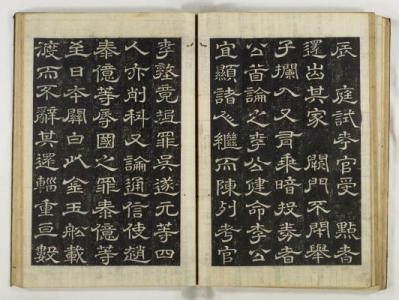 辰 庭試考官受 點者
還出其家 闕門不閉舉
子攔入又有乘暗投券者
公首論之李公健命李公
宜顯諸人繼而陳列考官
李墪竟抵罪吳遂元等四
人亦削科又論通信使趙
泰億等辱國之罪泰億等
至日本關白以金玉舩載
渡而不辭其還輜重亘數